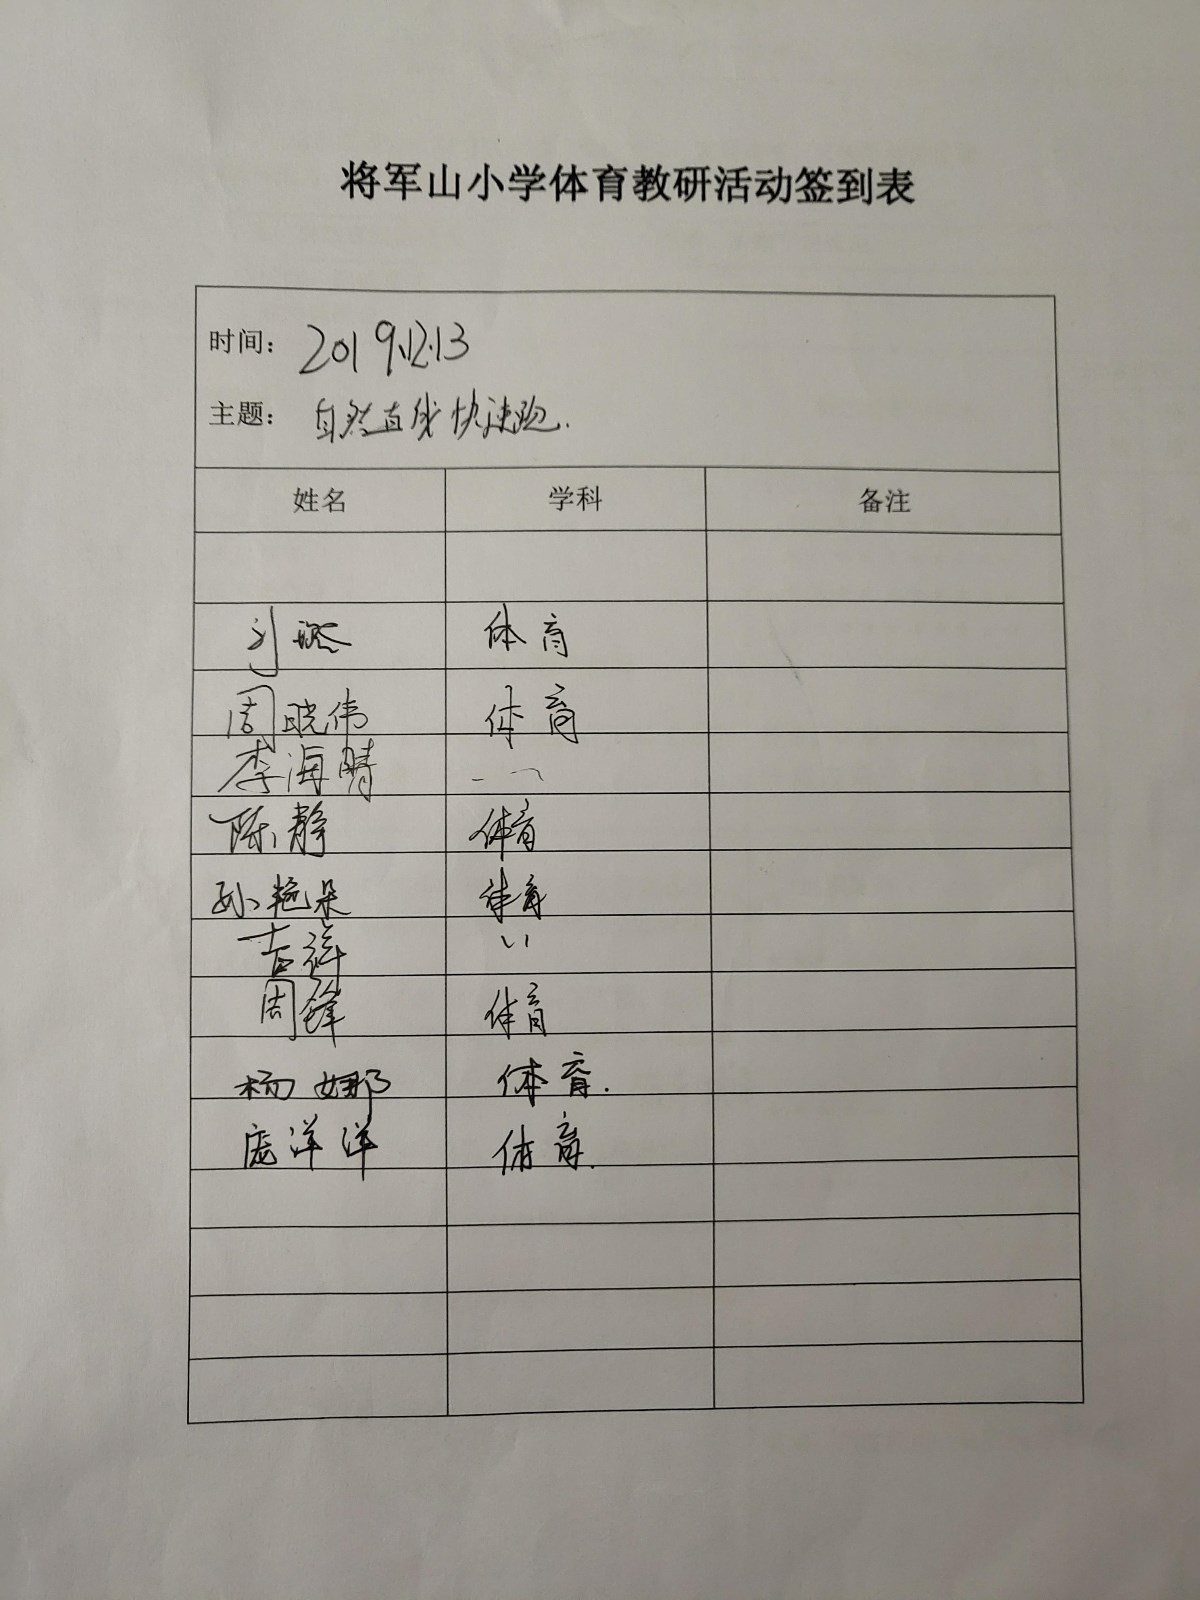 将军山小学体育教研活动签到表
时间: 2019.12.13
主题: 自然直线快速跑.
姓名 学科 备注
刘 体育
周晓伟 体育
李海晴 〃
陈静 体育
孙艳朵 体育
吉祥 〃
周锋 体育
杨娜 体育.
庞洋洋 体育.